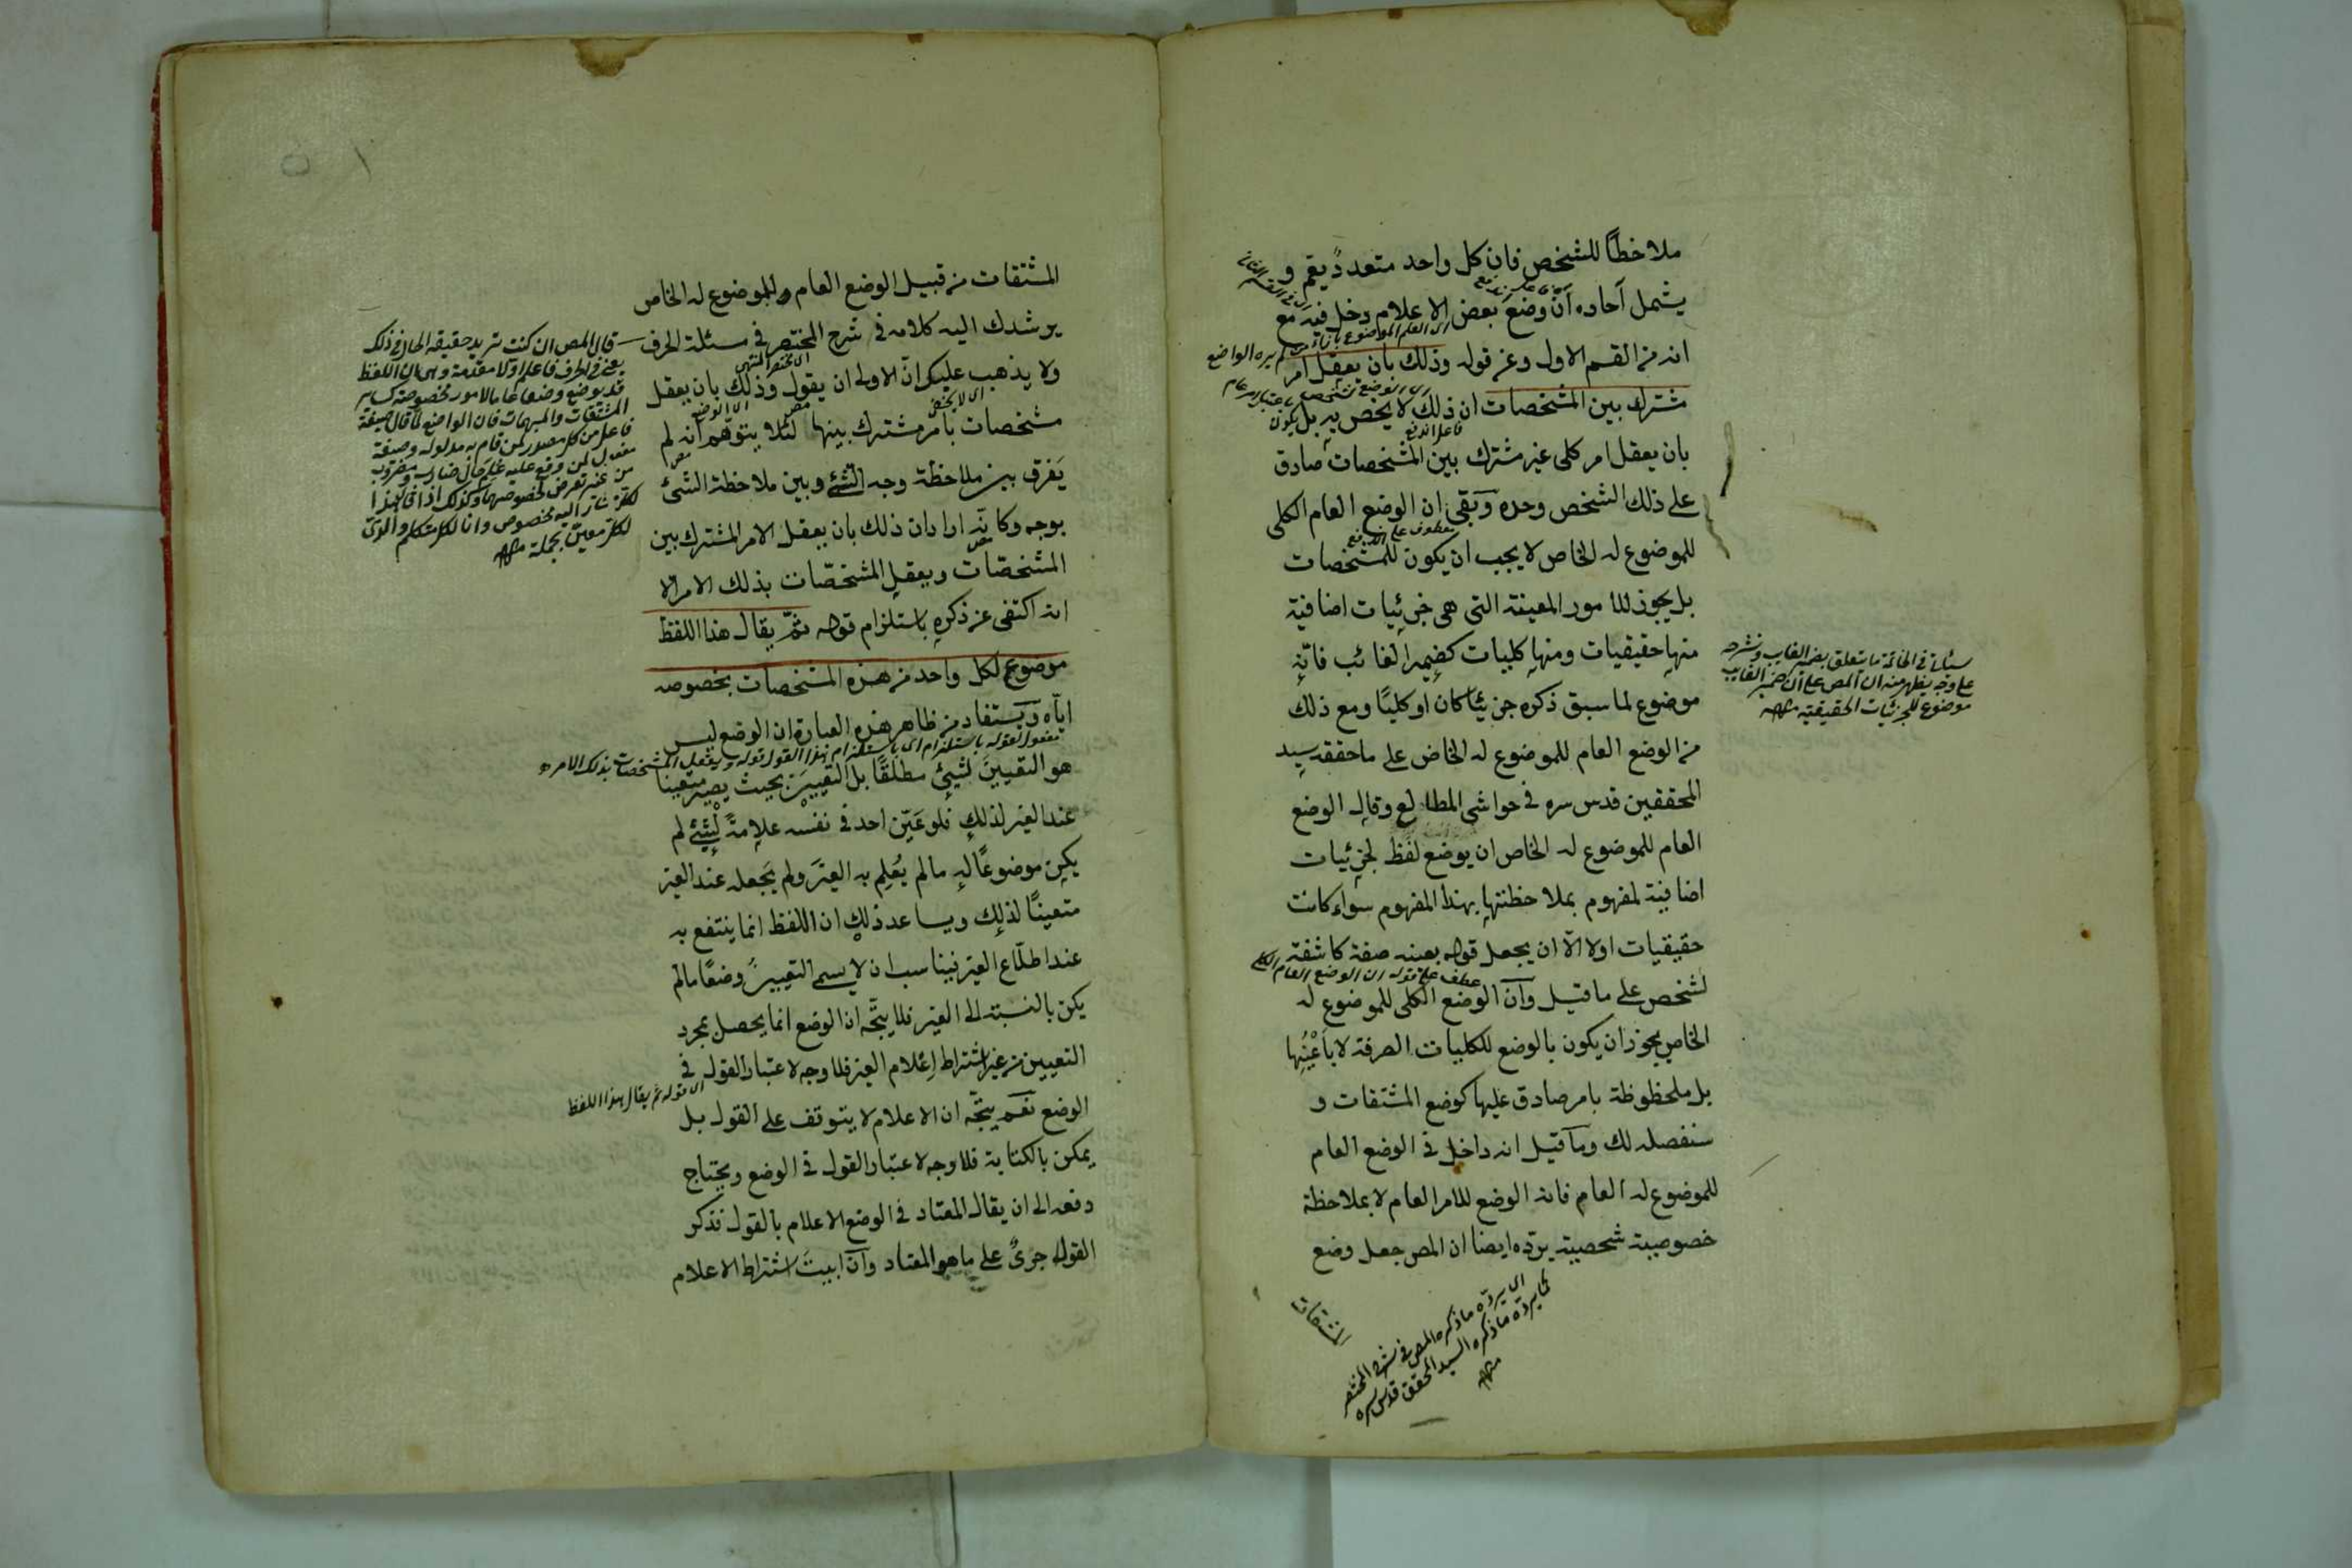 ملاحظاً للشخص فان كل واحد متعدد يقم و
يشمل آحاده ان وضع بعض الاعلام دخل فيه مع
انه من القسم الاول وعن قوله وذلك بان يعقل امر
مشترك بين المشخصات ان ذلك لا يخص به بل يكون
بان يعقل امر كلى غير مشترك بين المشخصات صادق
على ذلك الشخص وحده وبقى ان الوضع العام الكلى
للموضوع له الخاص لا يجب ان يكون للمشخصات
بل يجوز للامور المعينة التى هى جزئيات اضافية
منها حقيقيات ومنها كليات كضمير الغائب فانه
موضوع لما سبق ذكره جزئيا كان او كليا ومع ذلك
من الوضع العام للموضوع له الخاص على ما حققه سيد
المحققين قدس سره فى حواشى المطالع وقال الوضع
العام للموضوع له الخاص ان يوضع لفظ لجزئيات
اضافية لمفهوم بملاحظتها بهذا المفهوم سواء كانت
حقيقيات اولا الا ان يجعل قوله بعينه صفة كاشفة
عطف على قوله ان الوضع العام الكلى
لشخص على ما قيل وان الوضع الكلى للموضوع له
الخاص يجوز ان يكون بالوضع للكليات الصرفة لا باعينها
بل ملحظوظة بامر صادق عليها كوضع المشتقات و
سنفصله لك وما قيل انه داخل فى الوضع العام
للموضوع له العام فانه الوضع للامر العام لا بملاحظة
خصوصية شخصية يرده ايضا ان المص جعل وضع
المشتقات
اى يرده ما ذكره المص فى شرح المختصر
كما يرده ما ذكره السيد المحقق قدس سره
منه
سيأتى فى الخاتمة ما يتعلق بضمير الغايب ونشرحه
على وجه يظهر منه ان المص على ان ضمير الغايب
موضوع للجزئيات الحقيقية منه
المشتقات من قبيل الوضع العام وللموضوع له الخاص
يرشدك اليه كلامه فى شرح المختصر فى مسئلة الحرف
ولا يذهب عليك ان الاولى ان يقول وذلك بان يعقل
مشخصات بامر مشترك بينها لئلا يتوهم انه لم
يفرق بين ملاحظة وجه الشئ وبين ملاحظة الشئ
بوجه وكانه اراد ان ذلك بان يعقل الامر المشترك بين
المشخصات ويعقل المشخصات بذلك الامر الا
انه اكتفى عن ذكره باستلزام قوله ثم يقال هذا اللفظ
موضوع لكل واحد من هذه المشخصات بخصوصه
اياه ويستفاد من ظاهر هذه العبارة ان الوضع ليس
مفعول لقوله باستلزام اى باستلزام هذا القول قوله ويعقل المشخصات بذلك الامر
هو التعيين لشئ مطلقا بل التعيين بحيث يصير متعينا
عند الغير لذلك فلو عين احد فى نفسه علامة لشئ لم
يكن موضوعا له ما لم يعلم به الغير ولم يجعله عند الغير
متعينا لذلك ويساعد ذلك ان اللفظ انما ينتفع به
عند اطلاع الغير فيناسب ان لا يسم التعيين وضعا ما لم
يكن بالنسبة الى الغير فلا يتجه ان الوضع انما يحصل بمجرد
التعيين من غير اشتراط اعلام الغير فلا وجه لاعتبار القول فى
اى قوله ثم يقال هذا اللفظ
الوضع نعم يتجه ان الاعلام لا يتوقف على القول بل
يمكن بالكتابة فلا وجه لاعتبار القول فى الوضع ويحتاج
دفعه الى ان يقال المعتاد فى الوضع الاعلام بالقول فذكر
القول جرى على ما هو المعتاد وان ابيت اشتراط الاعلام
قال المص ان كنت تريد حقيقة الحال فى ذلك
يعنى فى الحرف فاعلم اولا مقدمة وهى ان اللفظ
قد يوضع وضعا عاما لامور مخصوصة كساير
المشتقات والمبهمات فان الواضع لما قال صيغة
فاعل من كل مصدر لمن قام به مدلوله وصيغة
مفعول لمن وقع عليه علم حال ضارب ومضروب
من غير تعرض لخصوصهما وكذلك اذا قال هذا
لكل مشار اليه مخصوص وانا لكل متكلم والذى
لكل معين بجملة منه